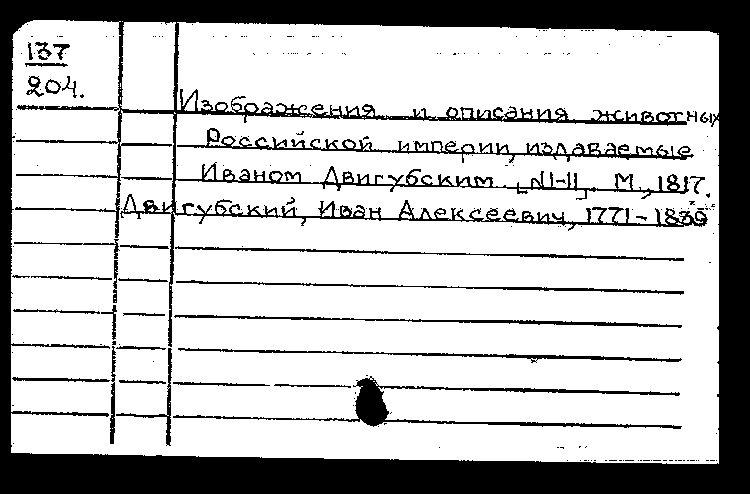 137
204.
Изображения и описания животных
Российской империи, издаваемые
Иваном Двигубским. [N1-11]. М., 1817.
Двигубский, Иван Алексеевич, 1771-1839